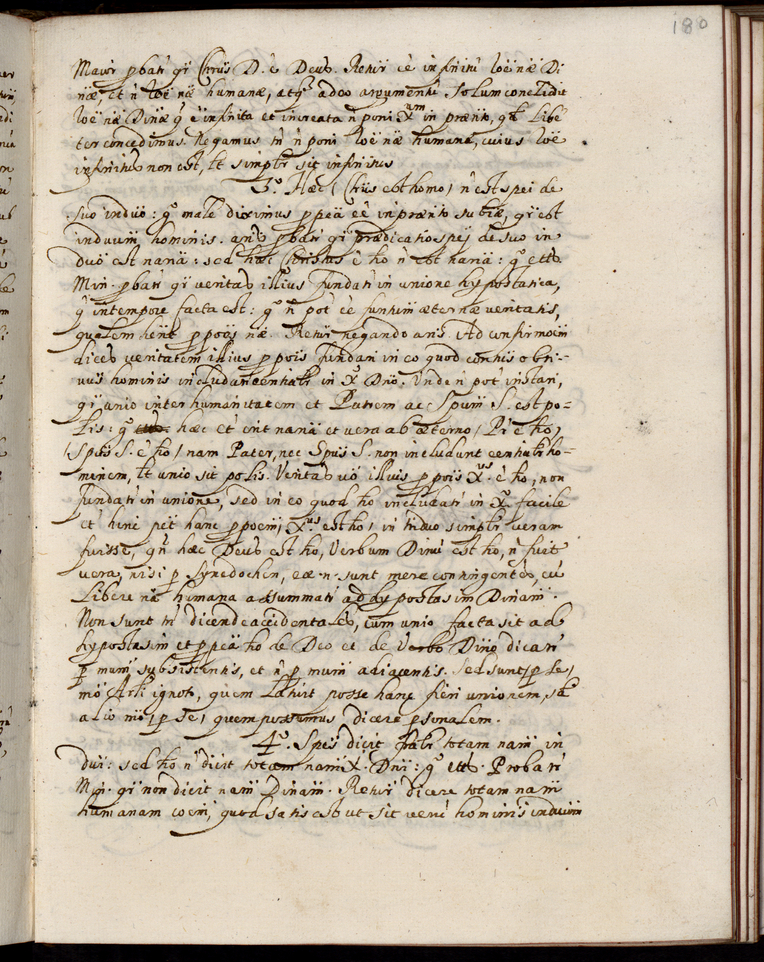 180
Maior pbatr qr Chrus D. è Deus. Retur èè infinitũ loẽ næ Di
næ, et ñ loẽ næ humanæ, atq adeo argumentũ solum concludit
loẽ næ Dinæ q è infinita et increata ñ poni Xum in prænto, qd libe
ter concedimus. Negamus tñ ñ poni loẽ næ humanæ, cuius loẽ
infinitus non est, lt simplr sit infinitus
3º. Hæc (Chrus est homo) ñ est spei de
suo induo: qº male diximus ppeã eè in prænto subtæ, qr est
induum hominis. ans pbatr qr prædicatio spej de suo in
duo est nanã: sed hæc Christus è ho ñ est nanã: qº etts
Min. pbatr qr veritas illius fundatr in unione hypostatica,
q in tempore facta est: qº ñ pot èè funtum æternæ veritatis,
qualem hent ppoes næ. Retur negando ans. Ad confirmoem
dices veritatem illius ppois fundari in eo quod conhis o Gri-
uus hominis includatr eenhalr in Xº Dno. Unde ñ pot instari,
qr unio inter humanitatem et Patrem ac Spum S. est po-
lis: qº hæc et erit nanã et vera ab æterno, Pr è ho,
Spus S. è ho, nam Pater, nec Spus S. non includunt eenhalr ho-
minem, lt unio sit polis. Veritas vő illius ppois Xus è ho, non
fundatr in unione, sed in eo quod ho includatr in Xº facile
et hinc pet hanc ppoem, Xus est ho, in triduo simplr veram
fuisse, qñ hæc Deus est ho, Verbum Dinũ est ho, ñ fuit
vera, nisi p synedochen, eæ .n. sunt mere contingentes, cũ
libere nã humana assummatr ad hypostasim Dinam.
Non sunt tñ dicendæ accidentales, cum unio facta sit ad
hypostasim et ppeã ho de Deo et de Verbo Dino dicatr
p mum subsistentis, et ñ p mum adiacentis. Sed sunt, p se,
mõ Arli ignoto, quem latuit posse hanc fieri unionem, sã
alio mõ, p se, quem possumus dicere psonalem.
4º. Spes dicit halr totam nam in
dui: sed ho ñ dicit totam nam X. Dni: qº etts. Probatr
Min. qr non dicit nam Dinam. Retur dicere totam nam
humanam coem, quod satis est ut sit veri hominis induum